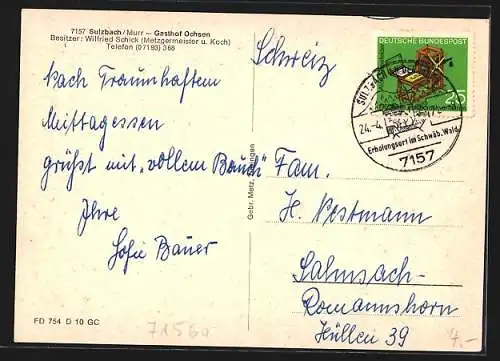 7157 Sulzbach/Murr – Gasthof Ochsen
Besitzer: Wilfried Schick (Metzgermeister u. Koch)
Telefon (07193) 368
Schweiz
DEUTSCHE BUNDESPOST
25
SULZBACH
24.-4.
Erholungsort im Schwäb. Wald
7157
Nach Traumhaftem
Mittagessen
grüßt mit "vollem Bauch"
Ihre
Sofie Bauer
Gebr. Metz,
Fam.
H. Pestmann
Salmsach-
Romannshorn
Hüllen 39
FD 754 D 10 GC
7156a
7.-